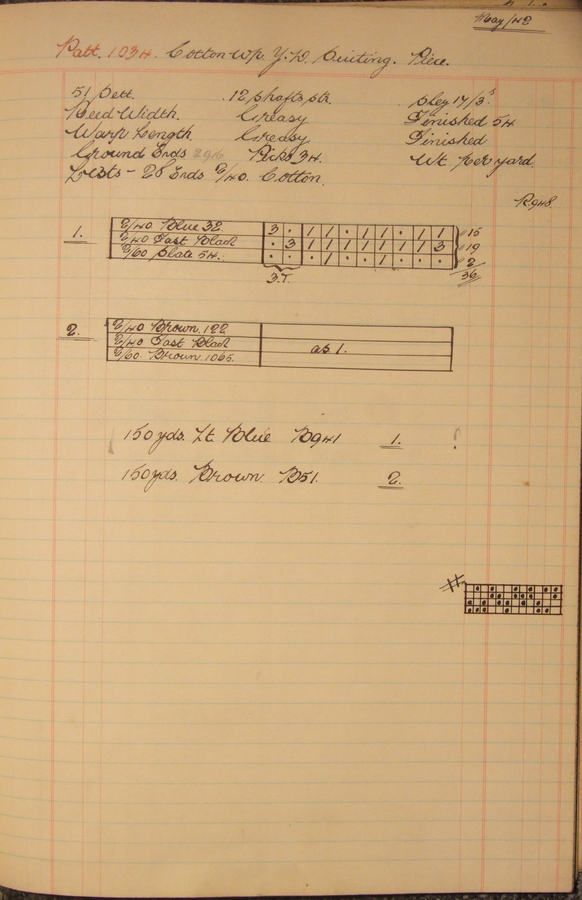 May/42
Patt. 1034. Cotton Wp. Y.D. Suiting. Piece.
51 Sett. 12 shafts str. Sley 17/3s
Reed Width. Greasy Finished 54
Warp Length Greasy Finished
Ground Ends 2916 Picks 34. Wt. per yard.
Lists - 20 Ends 2/40. Cotton.
R948.
1. 2/40 Blue 32. 3 · / / · / / · / / · 15
2/40 Fast Black · 3 / / · / / · / / 3 19
2/60 Slate 54. · · · · · · · 2
3T. 36
2. 2/40 Brown. 122
2/40 Fast Black as 1.
2/60. Brown. 1065.
150 yds. Lt. Blue B941 1. ?
150 yds. Brown. B51. 2.